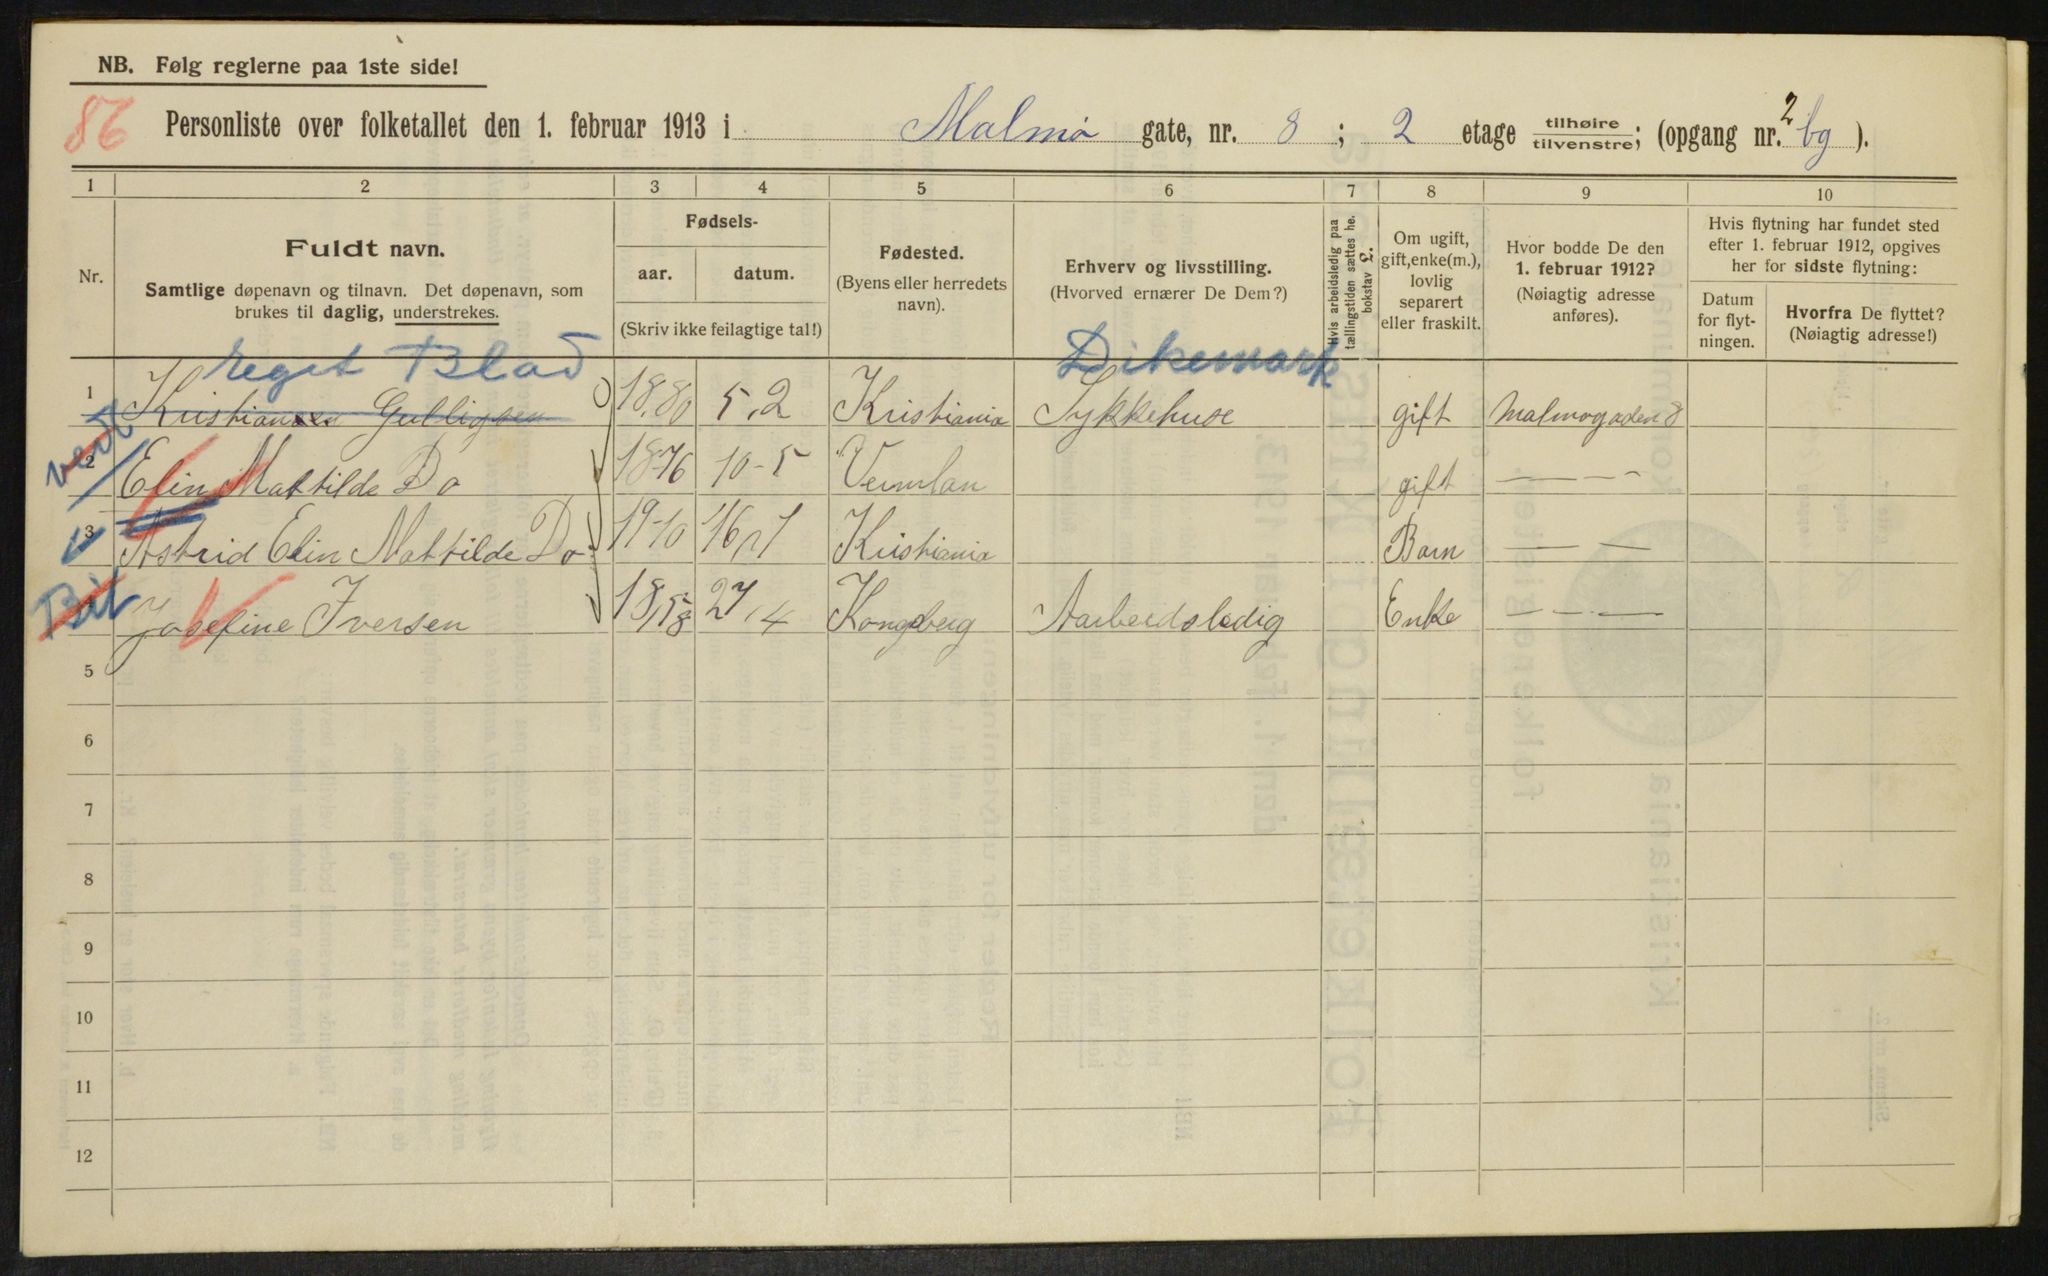 NB. Følg reglerne paa 1ste side!
86 Personliste over folketallet den 1. februar 1913 i Malmø gate, nr. 8; 2 etage tilhøire/tilvenstre; (opgang nr. 2 bg).
1 2 3 4 5 6 7 8 9 10
Nr.
Fuldt navn.
Samtlige døpenavn og tilnavn. Det døpenavn, som
brukes til daglig, understrekes.
Fødsels-
aar. datum.
(Skriv ikke feilagtige tal!)
Fødested.
(Byens eller herredets
navn).
Erhverv og livsstilling.
(Hvorved ernærer De Dem?)
Hvis arbeidsledig paa
tællingstiden sættes he.
bokstav L.
Om ugift,
gift, enke(m.),
lovlig
separert
eller fraskilt.
Hvor bodde De den
1. februar 1912?
(Nøiagtig adresse
anføres).
Hvis flytning har fundet sted
efter 1. februar 1912, opgives
her for sidste flytning:
Datum
for flyt-
ningen.
Hvorfra De flyttet?
(Nøiagtig adresse!)
eget Blad Dikemark
1 Kristiansen Gulligsen 1880 5.2 Kristiania Sykkehuse gift Malmøgaden 8
2 Elin Mattilde Do 1876 10-5 Vermlan gift — — —
3 Astrid Elin Mattilde Do 1910 16/1 Kristiania Barn — —
Josefine Iversen 1858 27/4 Kongsberg Aarbeidsledig Enke — — —
5
6
7
8
9
10
11
12